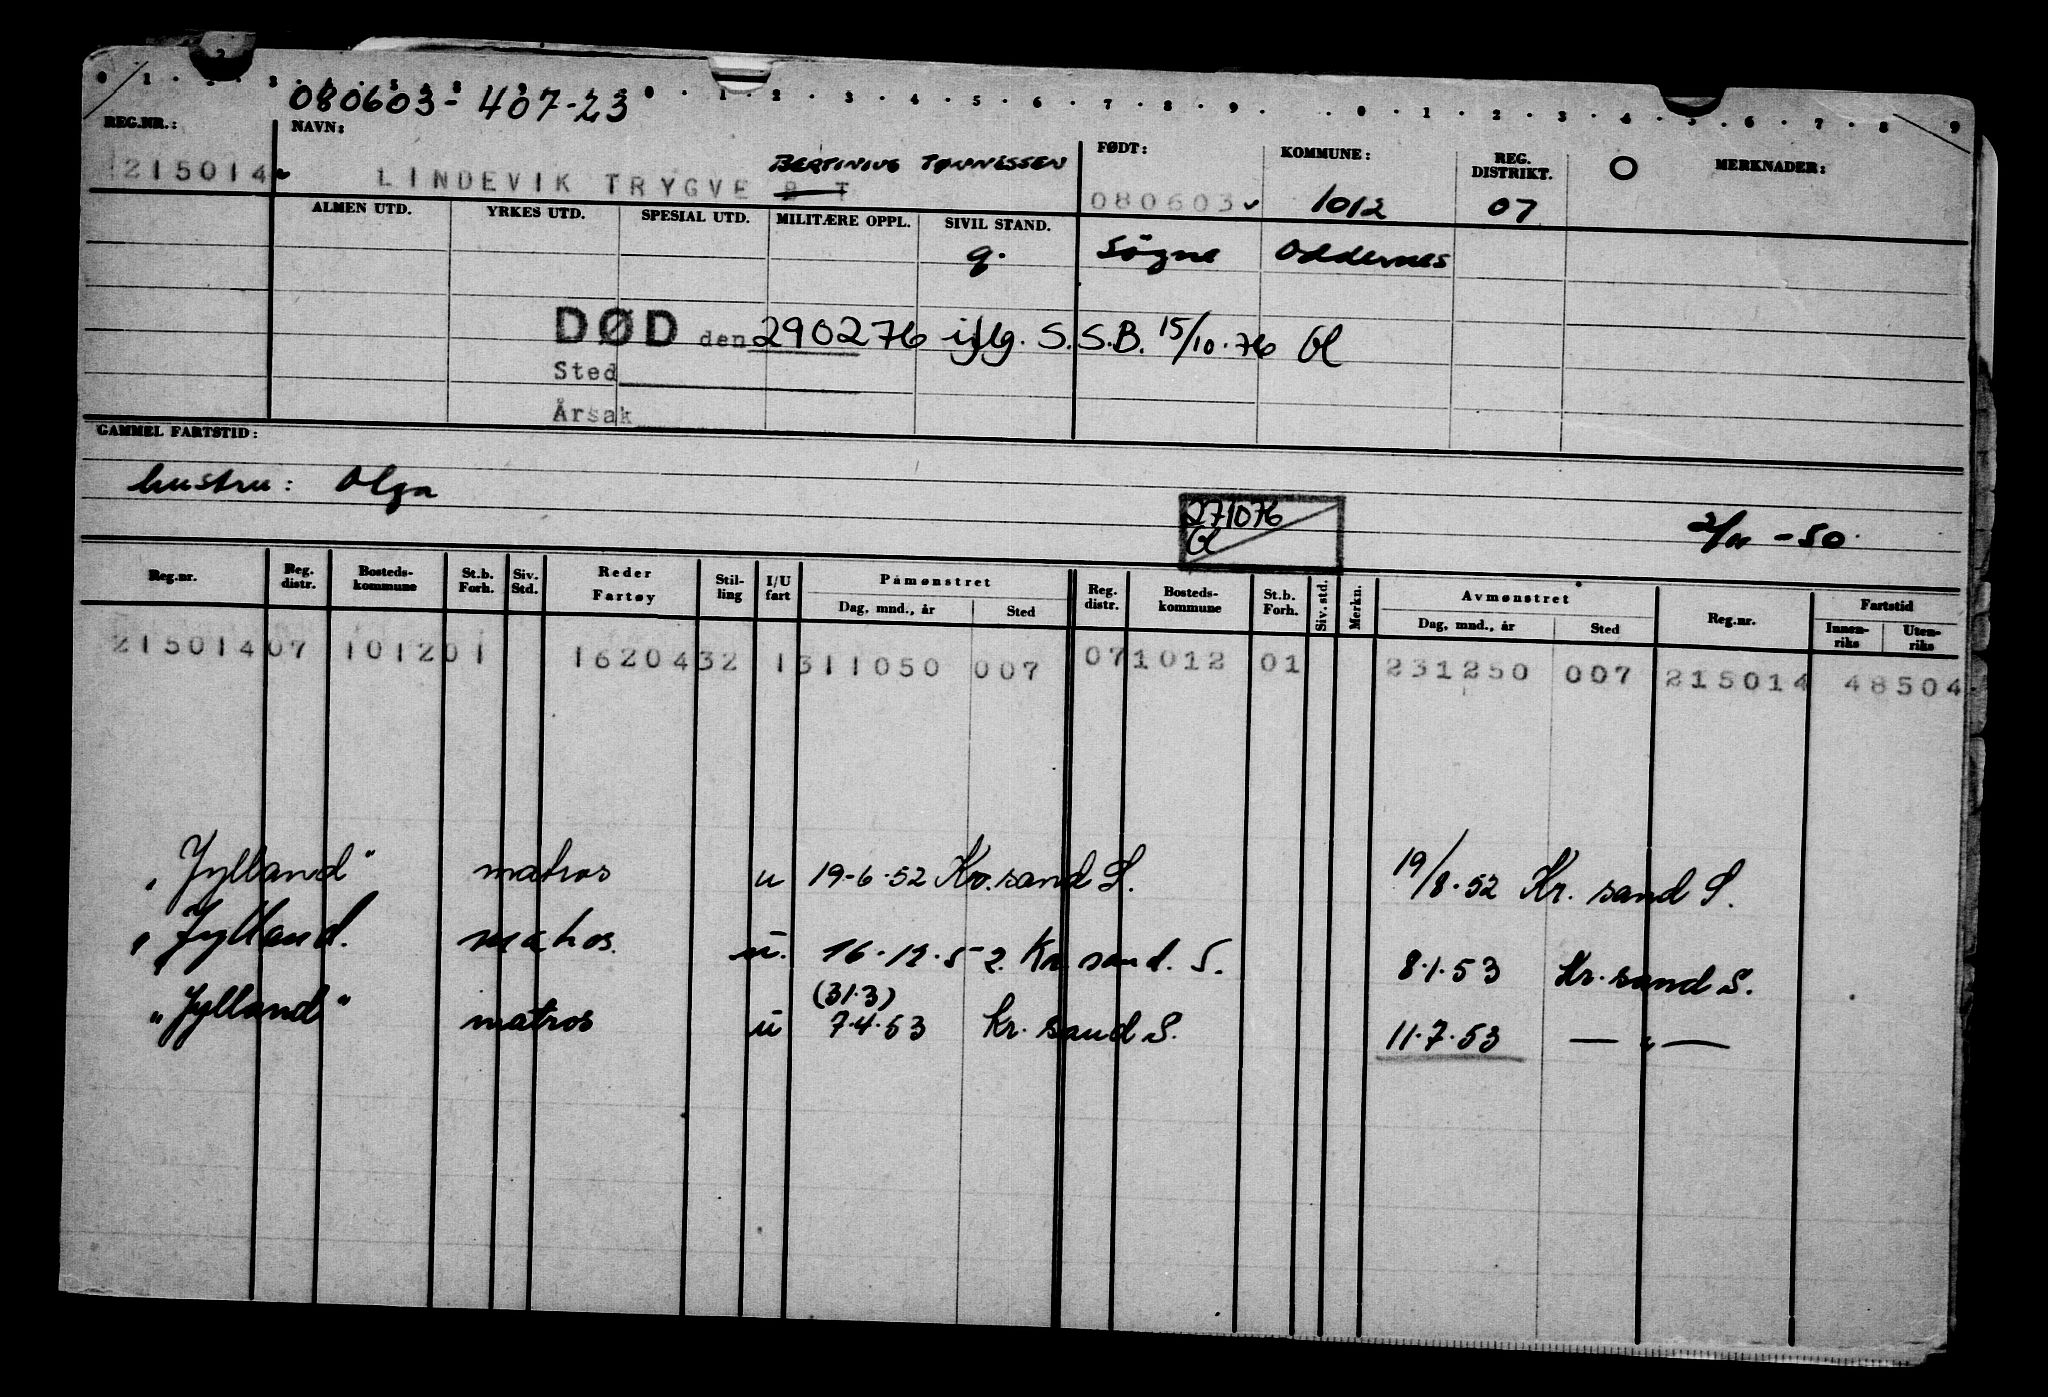 0 1 2 3
080603-407-23
0 1 2 3 4 5 6 7 8 9 0 1 2 3 4 5 6 7 8 9
REG.NR.: NAVN: FØDT: KOMMUNE: REG. DISTRIKT. O MERKNADER:
BERTINIUS TØNNESSEN
215014 LINDEVIK TRYGVE B T 080603 1012 07
ALMEN UTD. YRKES UTD. SPESIAL UTD. MILITÆRE OPPL. SIVIL STAND.
g. Søgne Oddernes
DØD den 290276 iflg. S.S.B. 15/10.76 Gl
Sted
Årsak
GAMMEL FARTSTID:
hustru: Olga
271076
Gl
-50
Reg.nr. Reg. distr. Bosteds-kommune St.b. Forh. Siv. Std. Reder Fartøy Stil-ling I/U fart Påmønstret Reg. distr. Bosteds-kommune St.b. Forh. Siv. std. Merkn. Avmønstret Reg.nr. Fartstid
Dag, mnd., år Sted Dag, mnd., år Sted Innen-riks Uten-riks
215014 07 1012 01 1620432 1 311050 007 07 1012 01 231250 007 215014 48504
"Jylland" matros u 19-6-52 Kr.sand S. 19/8.52 Kr. sand S.
"Jylland. matros. u. 16.12.52. Kr. sand. S. 8.1.53 Kr. sand S.
(31.3)
"Jylland" matros u 7.4.53 Kr. sand S. 11.7.53 — " —